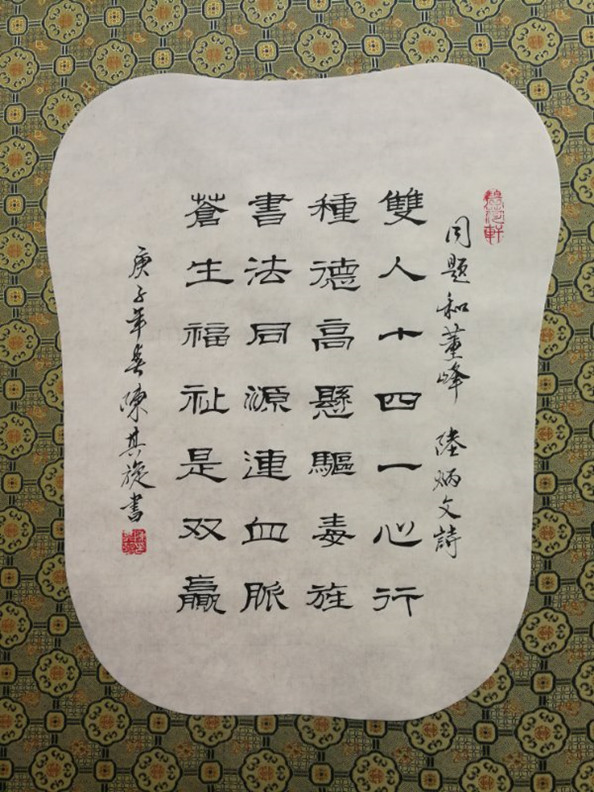 同題和董峰 陸炳文詩
雙人十四一心行
種德高懸驅毒旌
書法同源連血脈
蒼生福祉是双贏
庚子年春陳其旋書